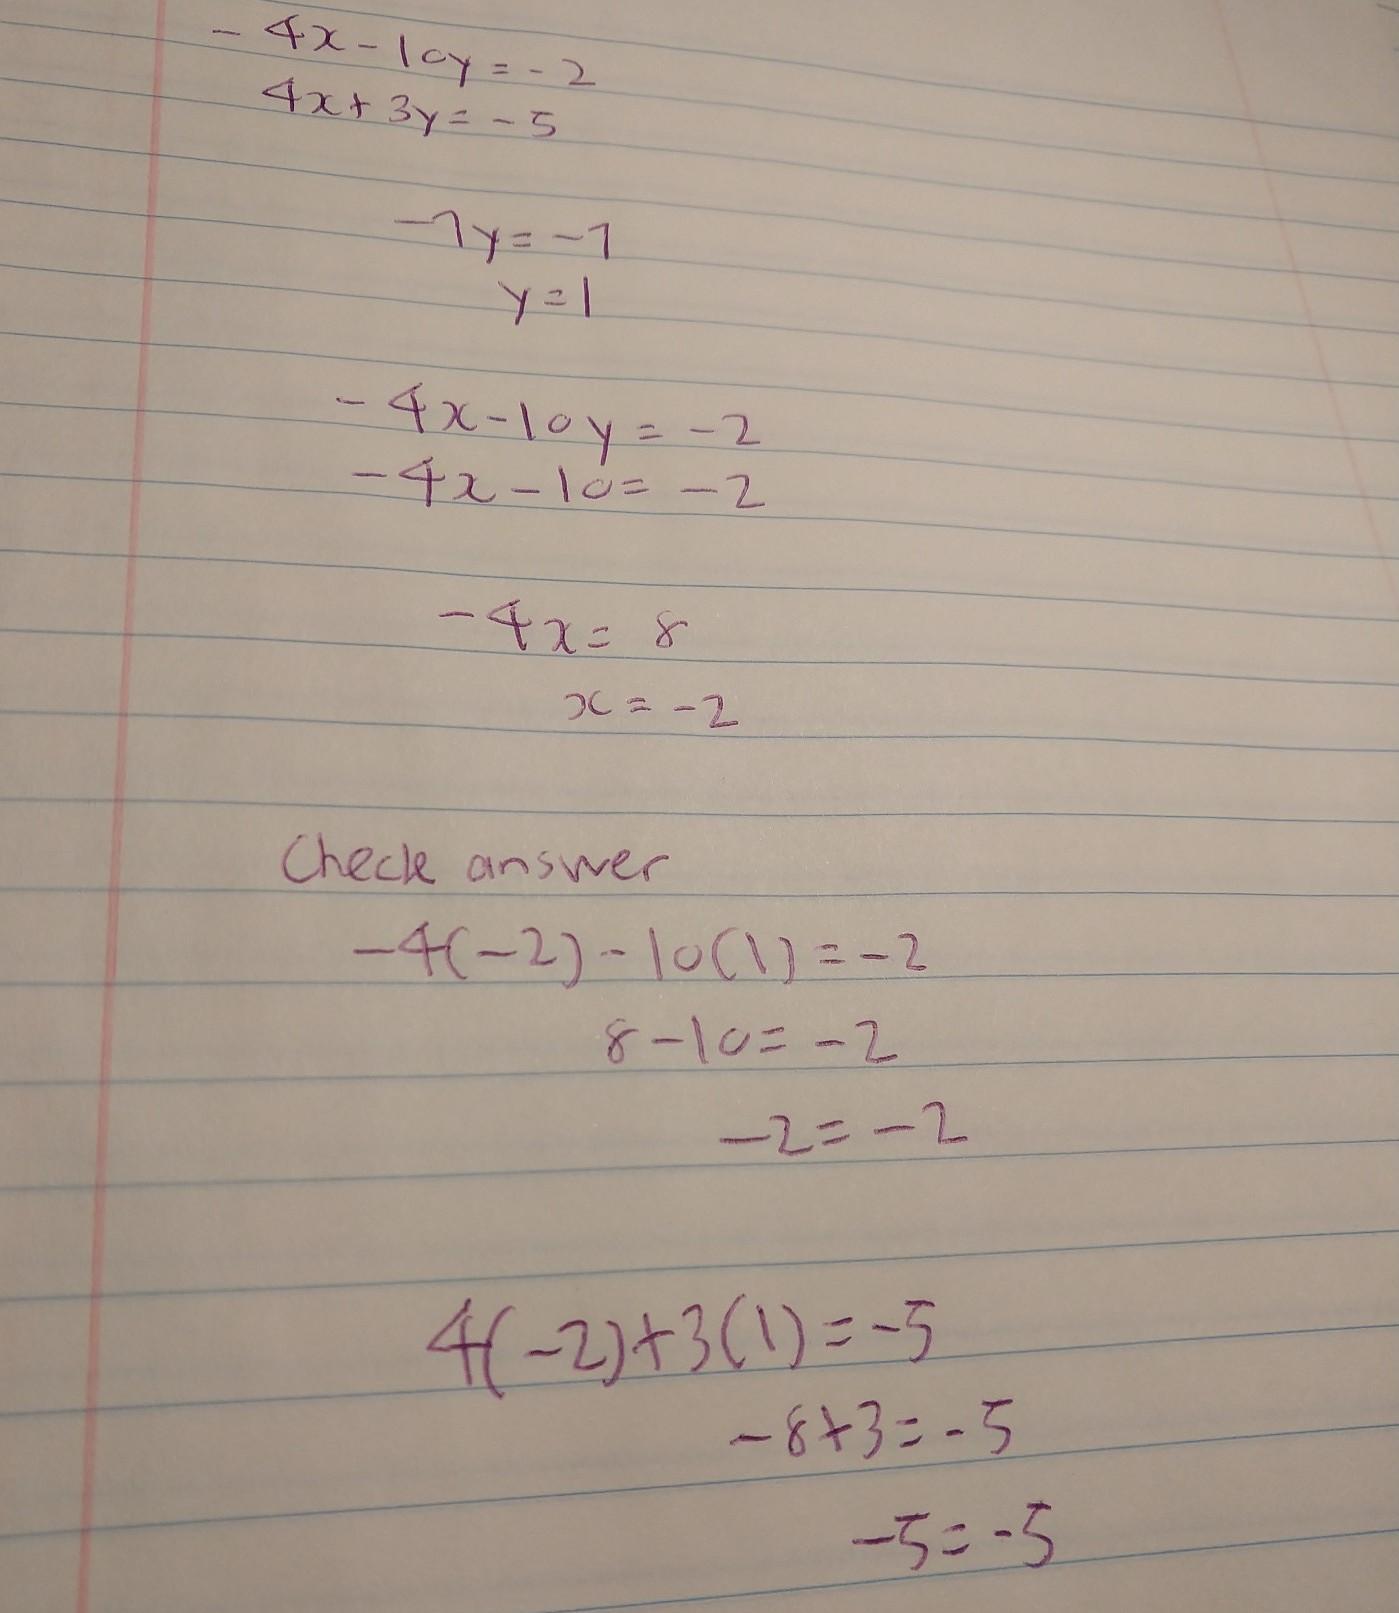 -4x-10y=-2
4x+3y=-5
-7y=-7
y=1
-4x-10y=-2
-4x-10=-2
-4x=8
x=-2
Check answer
-4(-2)-10(1)=-2
8-10=-2
-2=-2
4(-2)+3(1)=-5
-8+3=-5
-5=-5